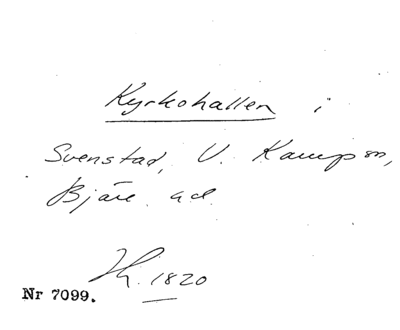 Kyrkohallen i
Svenstad, V. Karup sn,
Bjäre hd.
Th. 1820
Nr 7099.